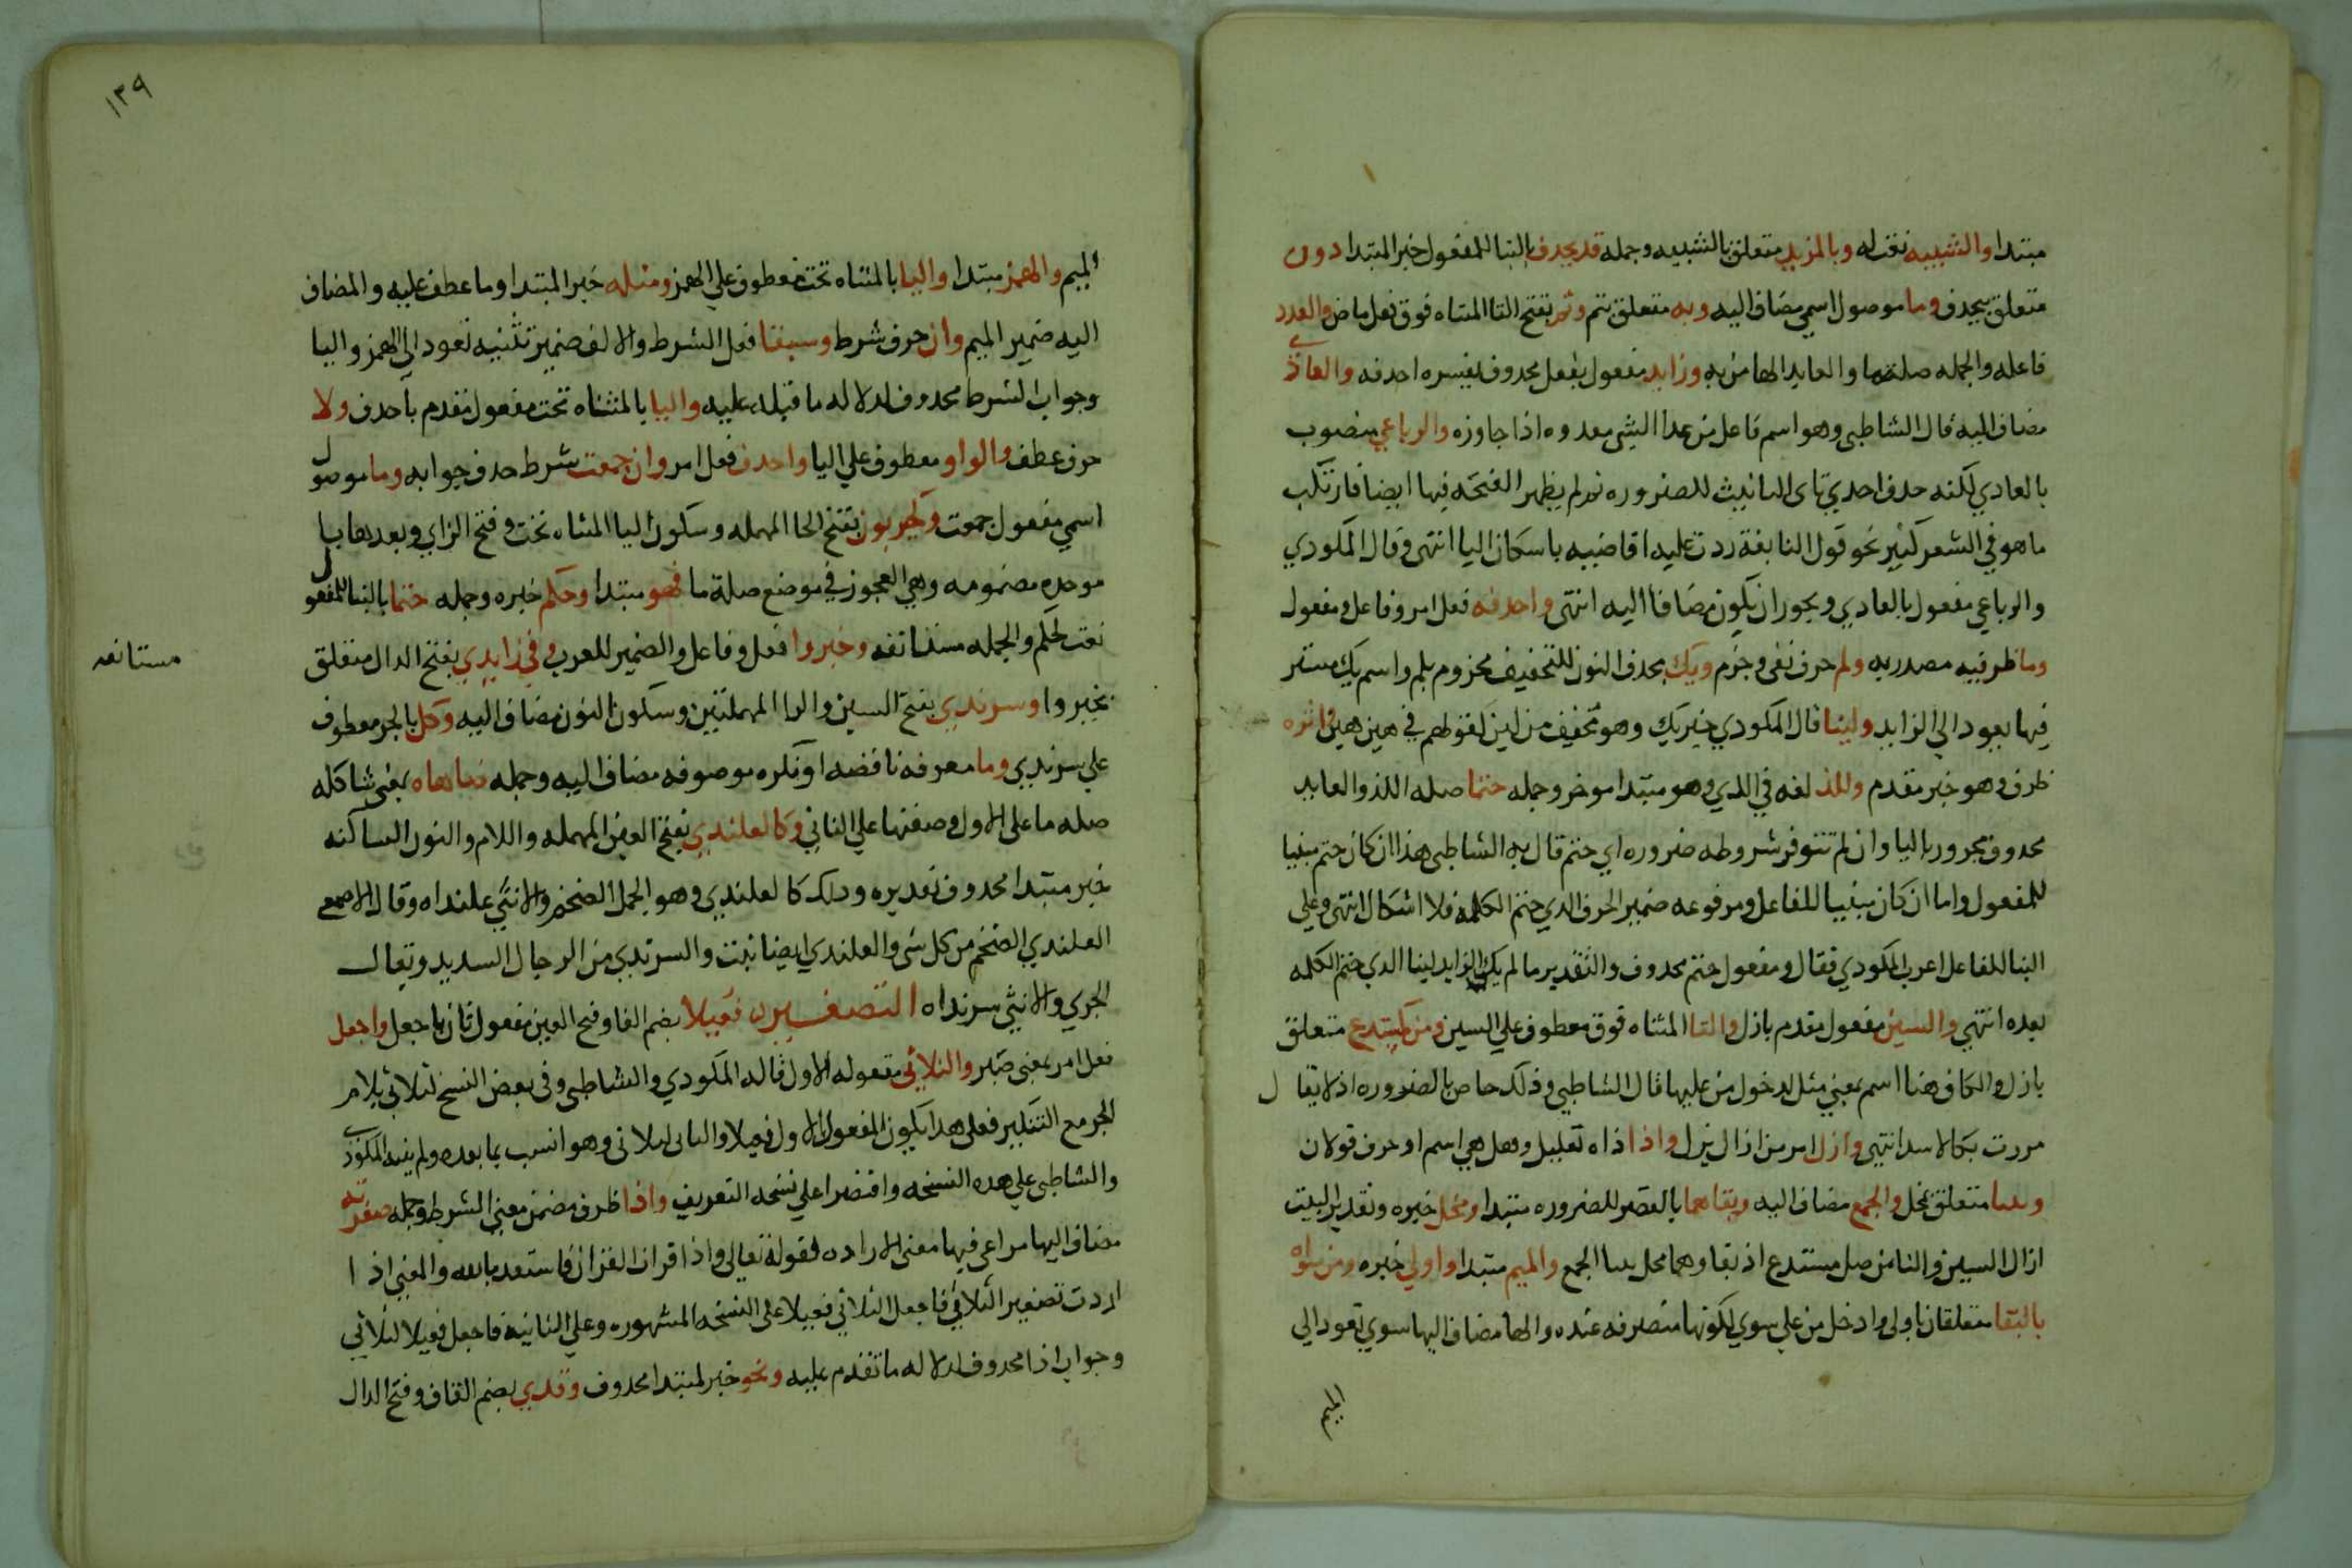 مبتدا والشبيه نعت له وبالمزيد متعلق بالشبيه وجملة قد يحذف بالبنا للمفعول خبر المبتدا دون
متعلق بيحذف وما موصول اسمي مضاف اليه وبه متعلق بتم وتم بفتح التا المثناه فوق فعل ماض والعدد
فاعله والجمله صلة ما والعايد الها من به وزايد مفعول بفعل محذوف يفسره احذفه والعادي
مضاف اليه قال الشاطبي وهو اسم فاعل من عدا الشي يعدوه اذا جاوزه والرباعي منصوب
بالعادي لكنه حذف احدي ياي التانيث للضروره ثم لم يظهر الفتحه فيها ايضا فارتكب
ما هو في الشعر كثير نحو قول النابغة ردت عليه اقاضيه باسكان اليا انتهى وقال المكودي
والرباعي مفعول بالعادي ويجوز ان يكون مضافا اليه انتهى واحذفه فعل امر وفاعل ومفعول
وما ظرفيه مصدريه ولم حرف نفى وجزم ويك بحذف النون للتخفيف مجزوم بلم واسم يك مستتر
فيها يعود الى الزايد ولينا قال المكودي خبر يك وهو مخفف من لين كقولهم في هين هين واثره
ظرف وهو خبر مقدم واللذ لغه في الذي وهو مبتدا موخر وجمله ختما صله اللذ والعايد
محذوف مجرور باليا وان لم تتوفر شروطه ضروره اي ختم قال به الشاطبي هذا ان كان ختم مبنيا
للمفعول واما ان كان مبنيا للفاعل ومرفوعه ضمير الحرف الذي ختم الكلمه فلا اشكال انتهى وعلي
البنا للفاعل اعرب المكودي فقال ومفعول ختم محذوف والتقدير ما لم يك الزايد لينا الذي ختم الكلمه
بعده انتهي والسين مفعول مقدم بازل والتا المثناه فوق معطوف علي السين ومن كمستدع متعلق
بازل والكاف هنا اسم بمعني مثل لدخول من عليها قال الشاطبي وذلك خاص بالضروره اذ لا يقال
مررت بكالاسد انتهي وازل امر من ازال يزل واذ اداه تعليل وهل هي اسم او حرف قولان
وببنا متعلق بمخل والجمع مضاف اليه وبقاهما بالقصر للضروره مبتدا ومخل خبره وتقدير البيت
ازل السين والتا من مثل مستدع اذ بقاوهما مخل ببنا الجمع والميم مبتدا واولي خبره ومن سواه
بالبقا متعلقان باولى وادخل من علي سوي لكونها متصرفه عنده والها مضاف اليها سوي تعود الى
الميم
١٣٩
الميم والهمز مبتدا واليا بالمثناه تحت معطوف علي الهمز ومثله خبر المبتدا وما عطف عليه والمضاف
اليه ضمير الميم وان حرف شرط وسبقا فعل الشرط والالف ضمير تثنيه تعود الى الهمز واليا
وجواب الشرط محذوف لدلاله ما قبله عليه واليا بالمثناه تحت مفعول مقدم باحذف ولا
حرف عطف والواو معطوف علي اليا واحذف فعل امر وان جمعت شرط حذف جوابه وما موصول
اسمي مفعول جمعت وكحيزبون بفتح الحا المهمله وسكون اليا المثناه تحت وفتح الزاي وبعدها با
موحده مضمومه وهي العجوز في موضع صلة ما فهو مبتدا وحكم خبره وجمله حتما بالبنا للمفعول
نعت لحكم والجمله مستانفه وخيروا فعل وفاعل والضمير للعرب وفي زايدي بفتح الدال متعلق
مستانفه
بخيروا وسرندي بفتح السين والرا المهملتين وسكون النون مضاف اليه وكل بالجر معطوف
علي سرندي وما معرفه ناقصه او نكره موصوفه مضاف اليه وجمله ضاهاه بمعنى شاكله
صله ما على الاول وصفتها علي الثاني وكالعلندي بفتح العين المهمله واللام والنون الساكنه
خبر مبتدا محذوف تقديره وذلك كالعلندي وهو الجمل الضخم والانثى علنداه وقال الاصمعي
العلندي الضخم من كل شي والعلندي ايضا نبت والسرندي من الرجال الشديد ويقال
الجري والانثي سرنداه التصغير فعيلا بضم الفا وفتح العين مفعول ثان باجعل واجعل
فعل امر بمعنى صير والثلاثي مفعوله الاول قاله المكودي والشاطبي وفى بعض النسخ لثلاثي بلام
الجر مع التنكير فعلى هذا يكون المفعول الاول فعيلا والثانى لثلاثى وهو انسب بما بعده ولم ينبه المكودي
والشاطبي علي هذه النسخه واقتصرا علي نسخه التعريف واذا ظرف مضمن معني الشرط وجمله صغرته
مضاف اليها مراعي فيها معنى الاراده كقوله تعالى واذا قرات القران فاستعذ بالله والمعني اذا
اردت تصغير الثلاثي فاجعل الثلاثي فعيلا على النسخه المشهوره وعلي الثانيه فاجعل فعيلا لثلاثي
وجواب اذا محذوف لدلاله ما تقدم عليه ونحو خبر لمبتدا محذوف وقذي بضم القاف وفتح الذال